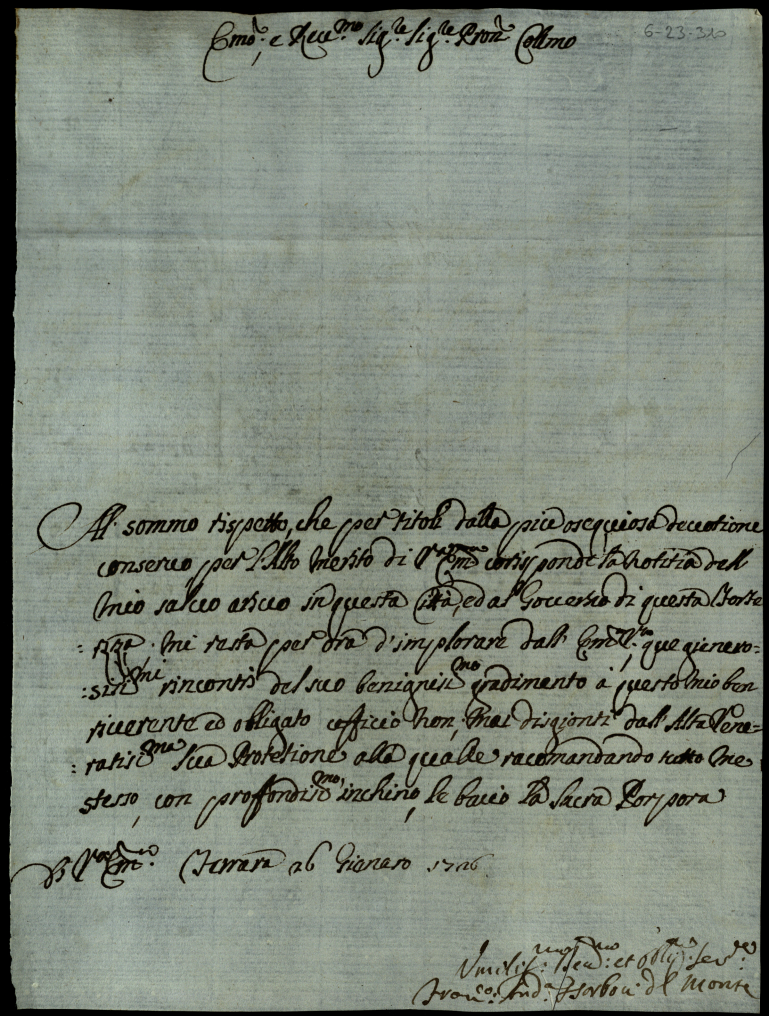 6-23-320
Emo: e Reue.mo Sig.re Sig.re Pron Collmo
Al sommo rispetto, che per titoli dalla piu osequiosa deuotione
conseruo per l'Alto merito di V.ra Em.a corisponde la notitia dell
mio saluo ariuo in questa Città, ed al Gouerno di questa Forte
:zza. Mi resta per ora d'implorare dall Em.a V.ra que gienero=
:sissi.mi rincontri del suo benignis.mo gradimento à questo mio ben
riuerente ed obligato ufficio non mai disgionti dall'Alta Vene=
:ratis.ma Sua Protetione alla qualle racomandando tutto me
stesso, con proffondis.mo inchino, le bacio la Sacra Porpora
Di V.ra Em.a Ferrara 26 Gienaro 1726
Vmiliss.mo Deu.mo et Oblig.mo Ser.re
Fran.co And.a Borbon del Monte